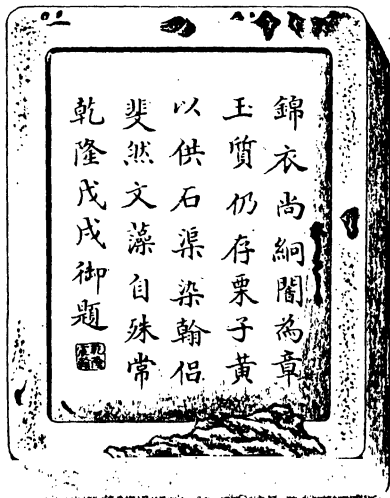 錦衣尚絅闇為章
玉質仍存栗子黃
以供石渠染翰侶
斐然文藻自殊常
乾隆戊戌御題